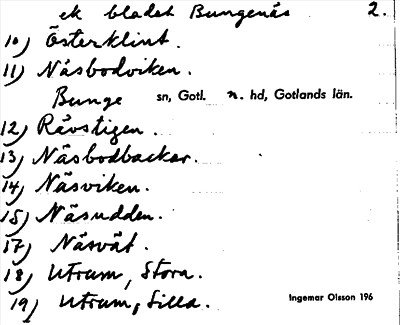 ek bladet Bungenäs 2.
10) Österklint.
11) Näsbodviken.
Bunge sn, Gotl. n. hd, Gotlands län.
12) Rävstigen.
13) Näsbodbackar.
14) Näsviken.
15) Näsudden.
17) Näsvät.
18) Utrum, Stora.
19) Utrum, Lilla.
Ingemar Olsson 196